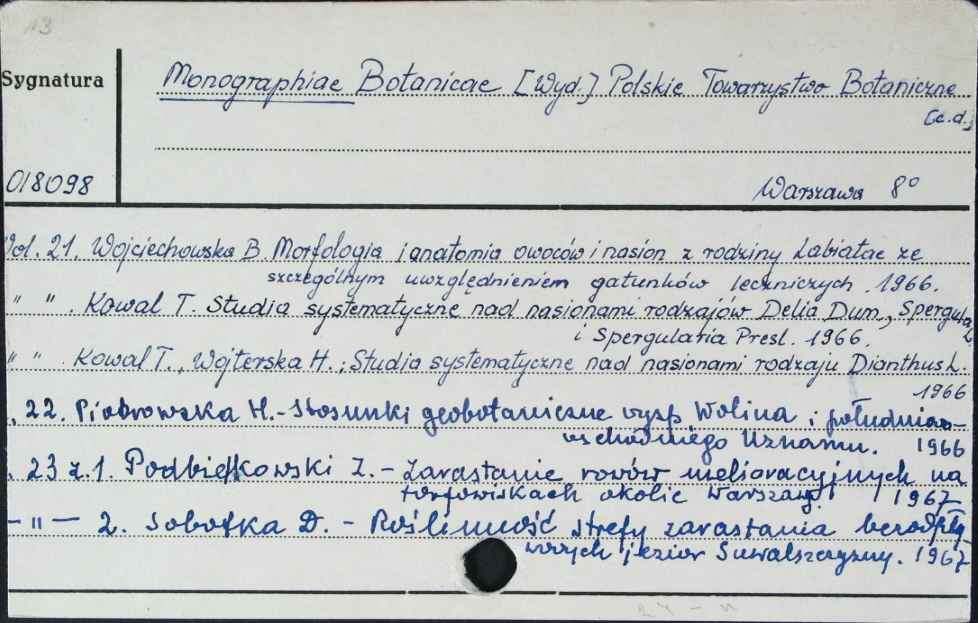 13
Sygnatura
Monographiae Botanicae [Wyd.] Polskie Towarzystwo Botaniczne
[c.d.]
018098
Warszawa 8°
Vol. 21. Wojciechowska B. Morfologia i anatomia owoców i nasion z rodziny Labiatae ze
szczególnym uwzględnieniem gatunków leczniczych. 1966.
" " . Kowal T. Studia systematyczne nad nasionami rodzajów Delia Dum., Spergula L.
i Spergularia Presl. 1966.
" " . Kowal T., Wojterska H.; Studia systematyczne nad nasionami rodzaju Dianthus L.
1966
. 22. Piotrowska H. - Stosunki geobotaniczne wysp Wolina i południowo-
wschodniego Uznamu. 1966
. 23 z.1. Podbielkowski Z. - Zarastanie rowów melioracyjnych na
torfowiskach okolic Warszawy. 1967
- " - 2. Sobotka D. - Roślinność strefy zarastania bezodpły-
wowych jezior Suwalszczyzny. 1967